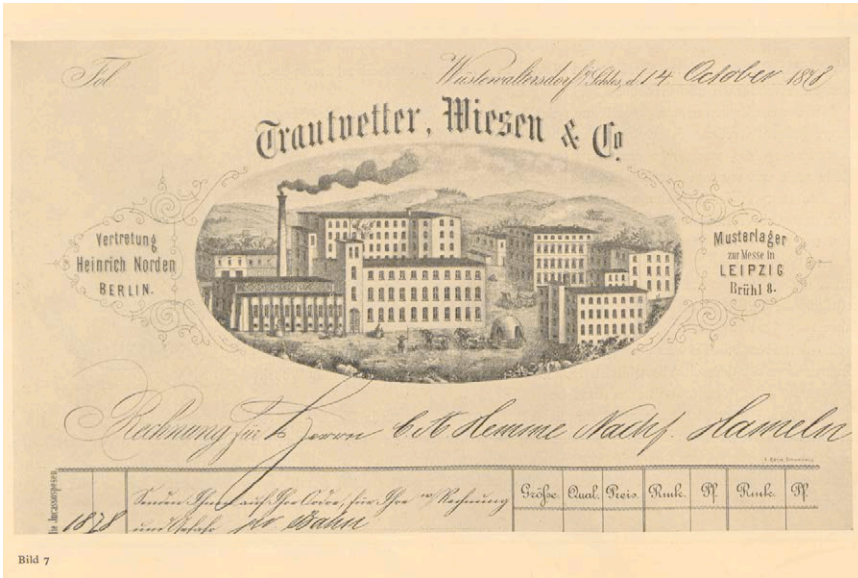 Fol
Wüstewaltersdorf i/Schles, d. 14 October 1878
Trautvetter, Wiesen & Co
Vertretung
Heinrich Norden
BERLIN.
Musterlager
zur Messe in
LEIPZIG
Brühl 8.
Rechnung für Herrn C A Hemme Nachf. Hameln
1878
Senden Ihnen auf Ihre Ordre, für Ihre w/ Rechnung
und Gefahr per Bahn
Größe. Qual. Preis. Rmk. Pf. Rmk. Pf.
Bild 7